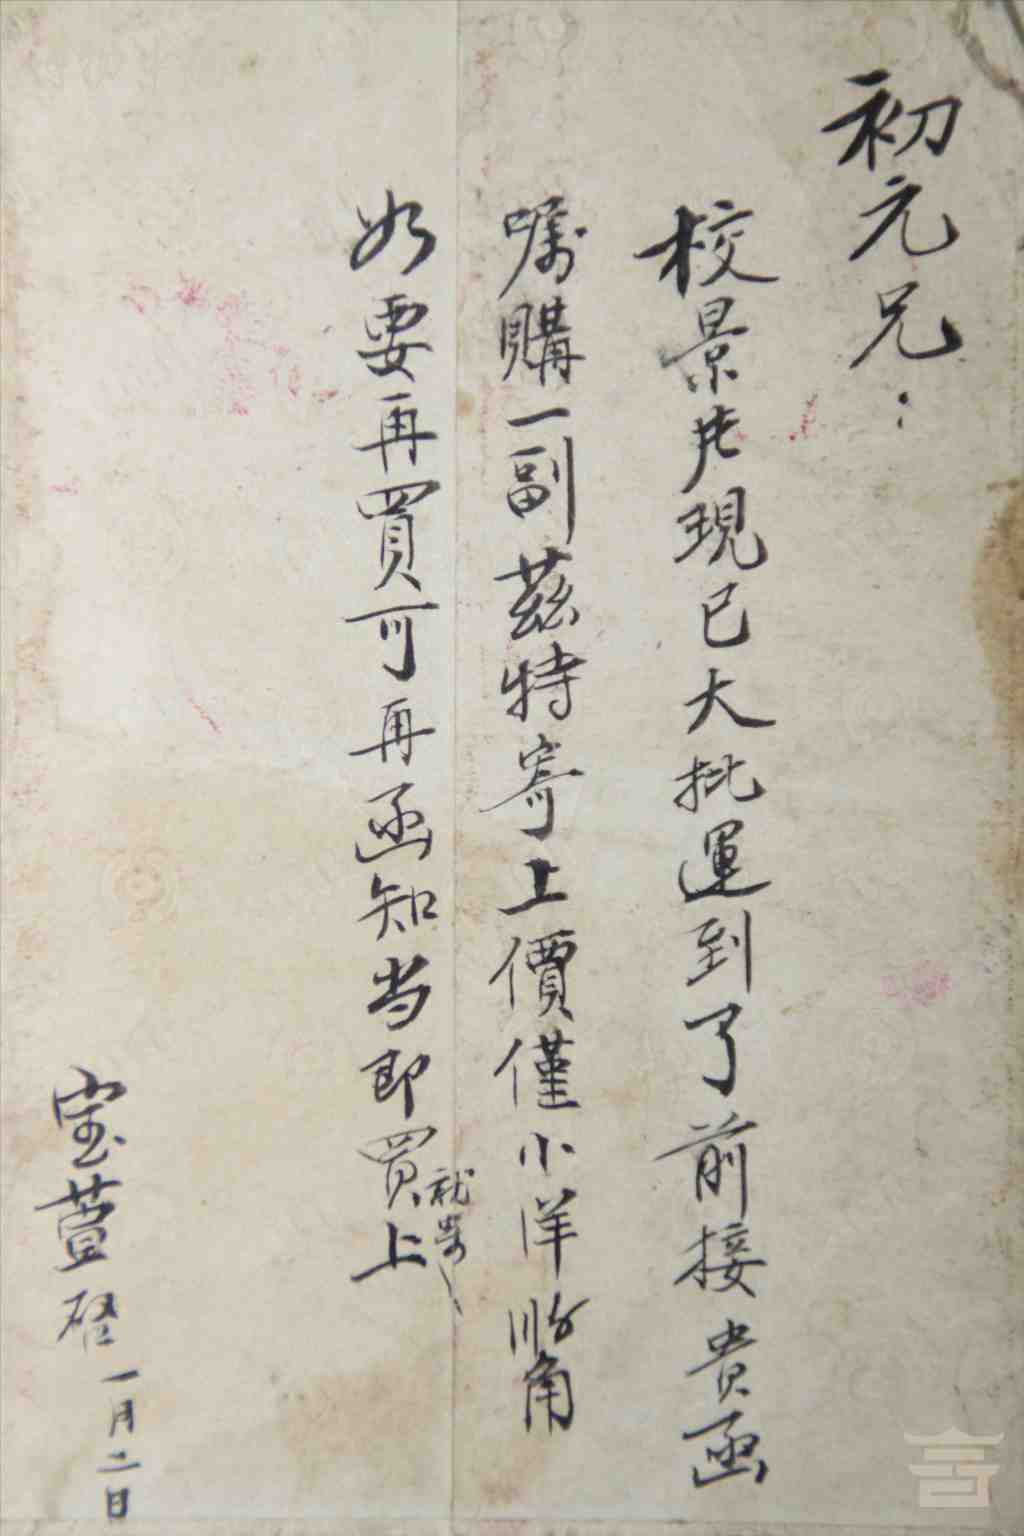 初元兄：
校景片現已大批運到了前接貴函
嘱購一副茲特寄上價僅小洋〢角
如要再買可再函知当即買就寄上
宝萱啓
一月二日